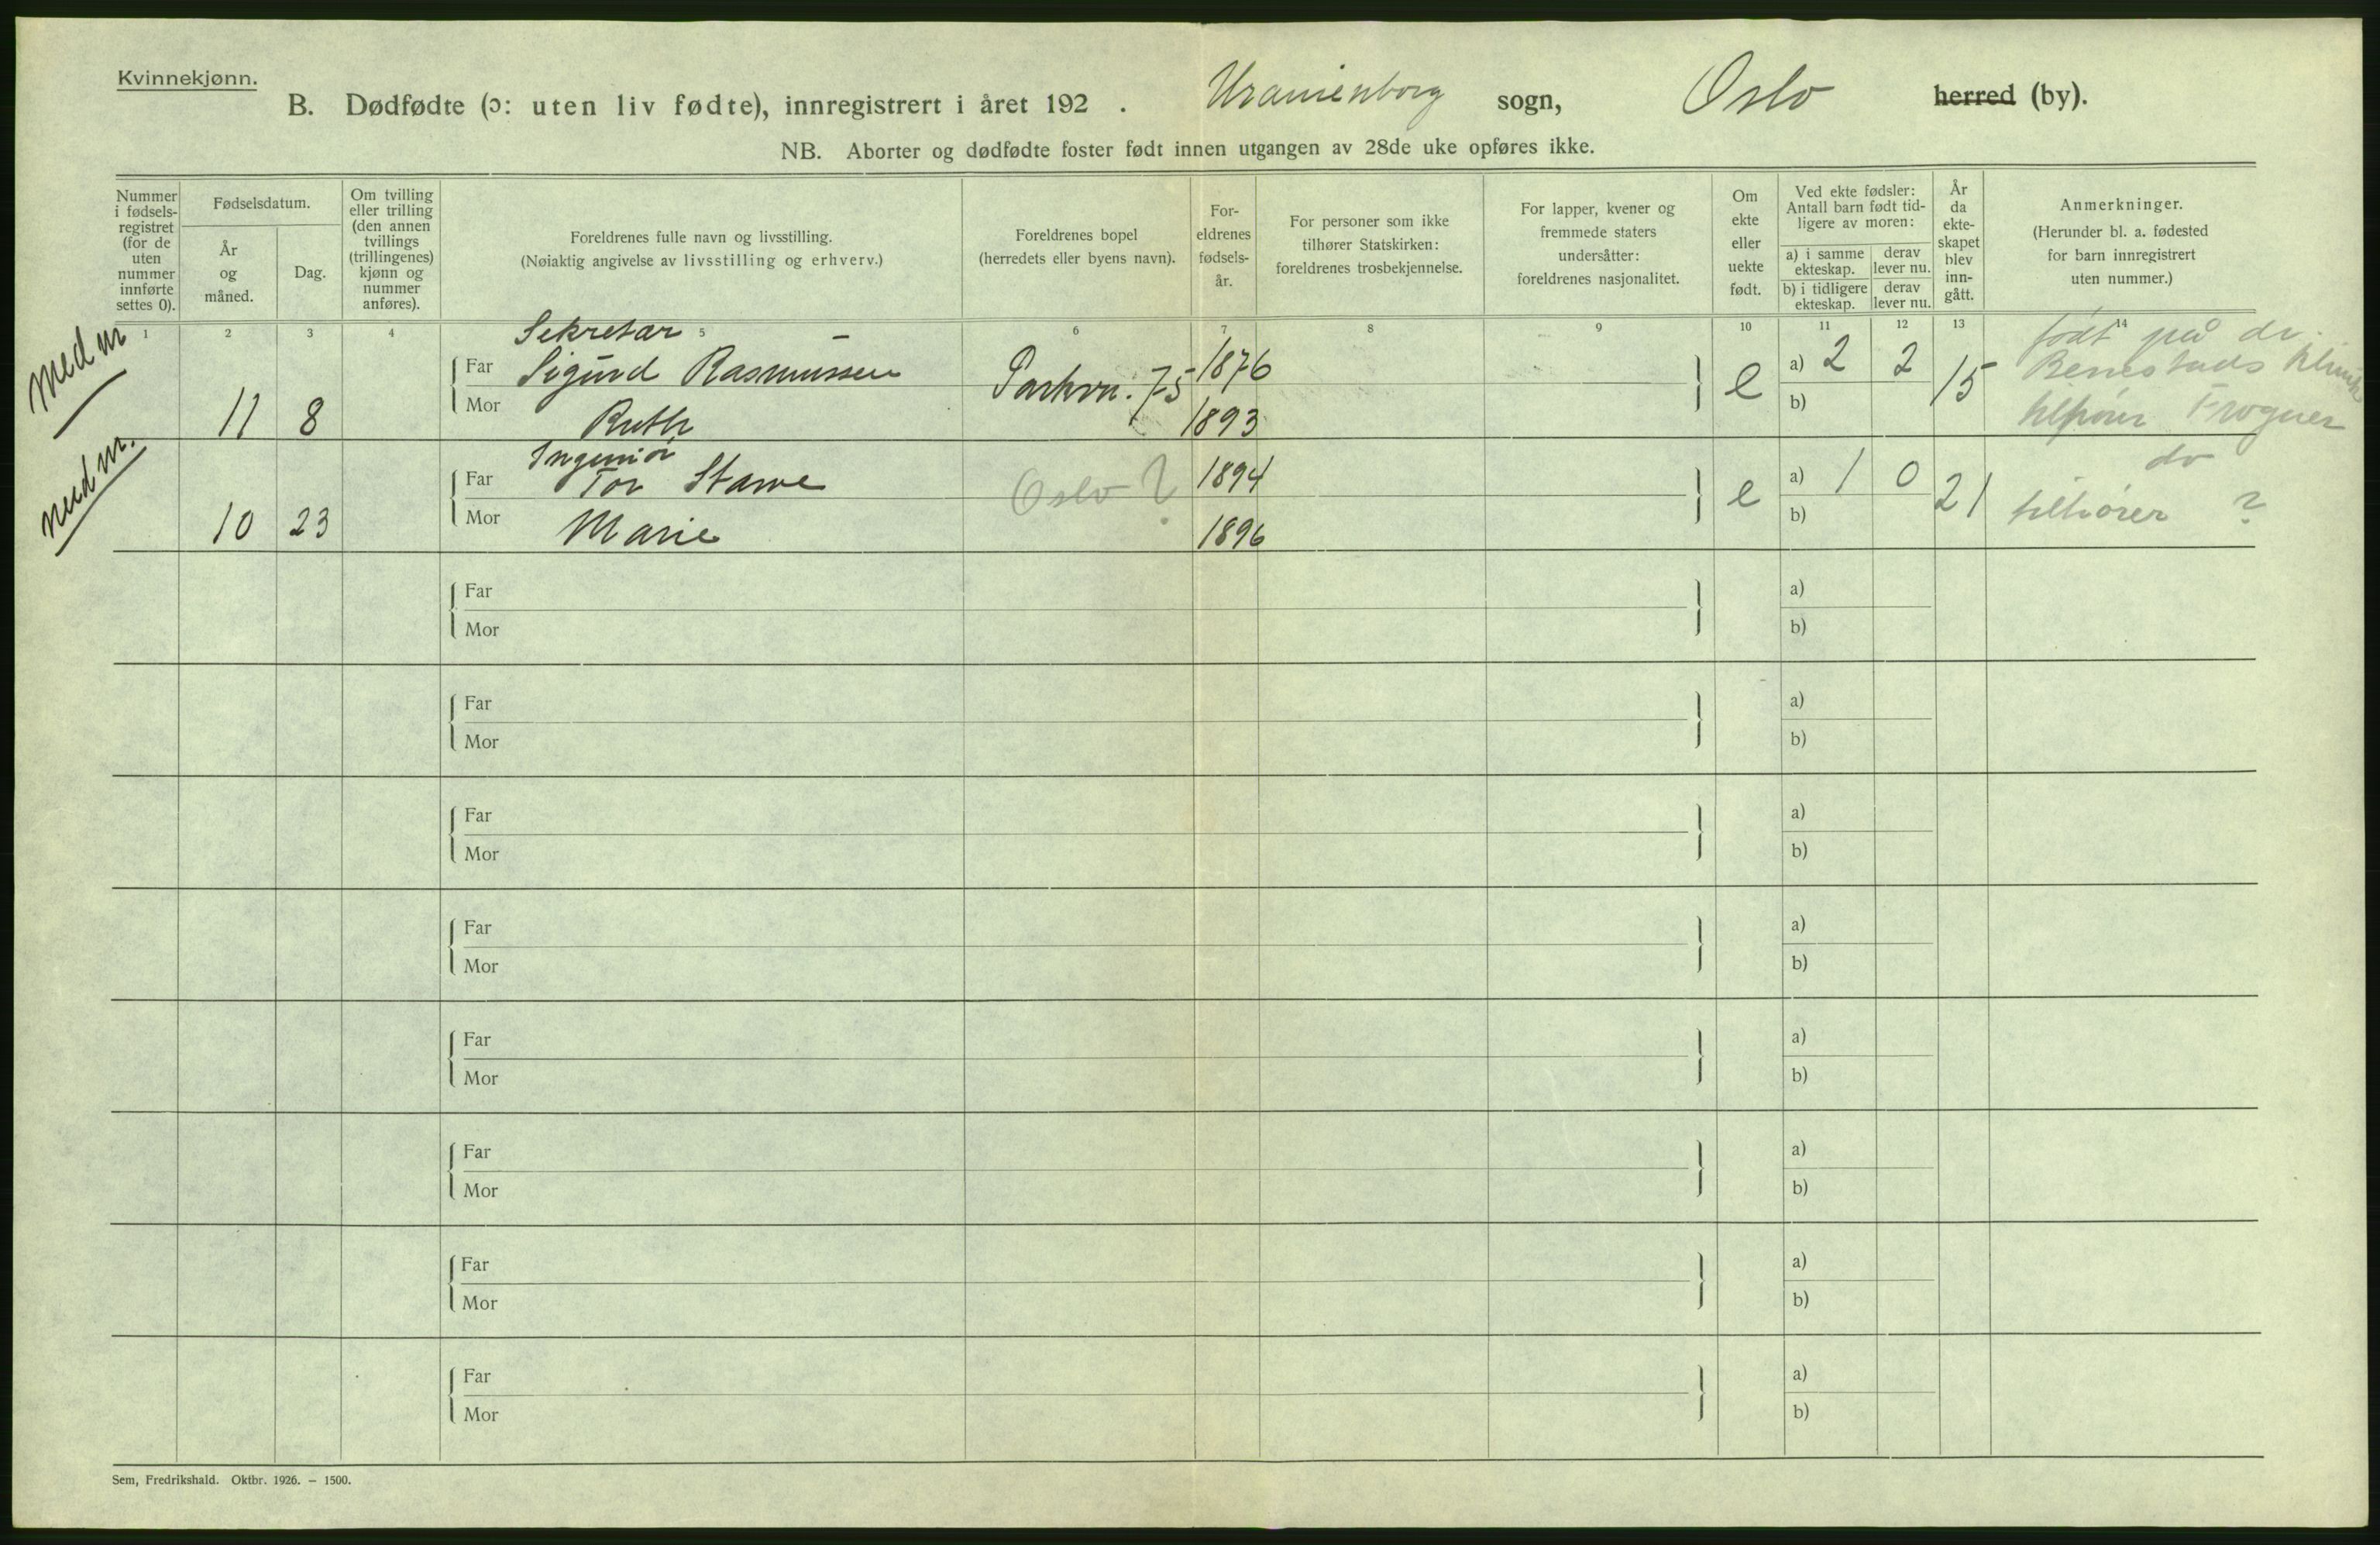 Kvinnekjønn.
B. Dødfødte (ɔ: uten liv fødte), innregistrert i året 192 . Uranienborg sogn, Oslo herred (by).
NB. Aborter og dødfødte foster født innen utgangen av 28de uke opføres ikke.
Nummer i fødsels-registret (for de uten nummer innførte settes 0).
Fødselsdatum.
År og måned.
Dag.
Om tvilling eller trilling (den annen tvillings (trillingenes) kjønn og nummer anføres).
Foreldrenes fulle navn og livsstilling.
(Nøiaktig angivelse av livsstilling og erhverv.)
Foreldrenes bopel
(herredets eller byens navn).
For-eldrenes fødsels-år.
For personer som ikke tilhører Statskirken: foreldrenes trosbekjennelse.
For lapper, kvener og fremmede staters undersåtter: foreldrenes nasjonalitet.
Om ekte eller uekte født.
Ved ekte fødsler: Antall barn født tid-ligere av moren:
a) i samme ekteskap. derav lever nu.
b) i tidligere ekteskap. derav lever nu.
År da ekte-skapet blev inn-gått.
Anmerkninger.
(Herunder bl. a. fødested for barn innregistrert uten nummer.)
1 2 3 4 5 6 7 8 9 10 11 12 13 14
Med nr
Sekretær
11 8 Far Sigurd Rasmussen Parkvn. 75 1876 e a) 2 2 15 født på dr. Benestads klinikk
Mor Ruth 1893 b) tilhører Frogner
med nr.
Ingeniør
10 23 Far Tor Starve Oslo ? 1894 e a) 1 0 21 do
Mor Marie 1896 b) tilhører ?
Far a)
Mor b)
Far a)
Mor b)
Far a)
Mor b)
Far a)
Mor b)
Far a)
Mor b)
Far a)
Mor b)
Far a)
Mor b)
Far a)
Mor b)
Sem, Fredrikshald. Oktbr. 1926. – 1500.